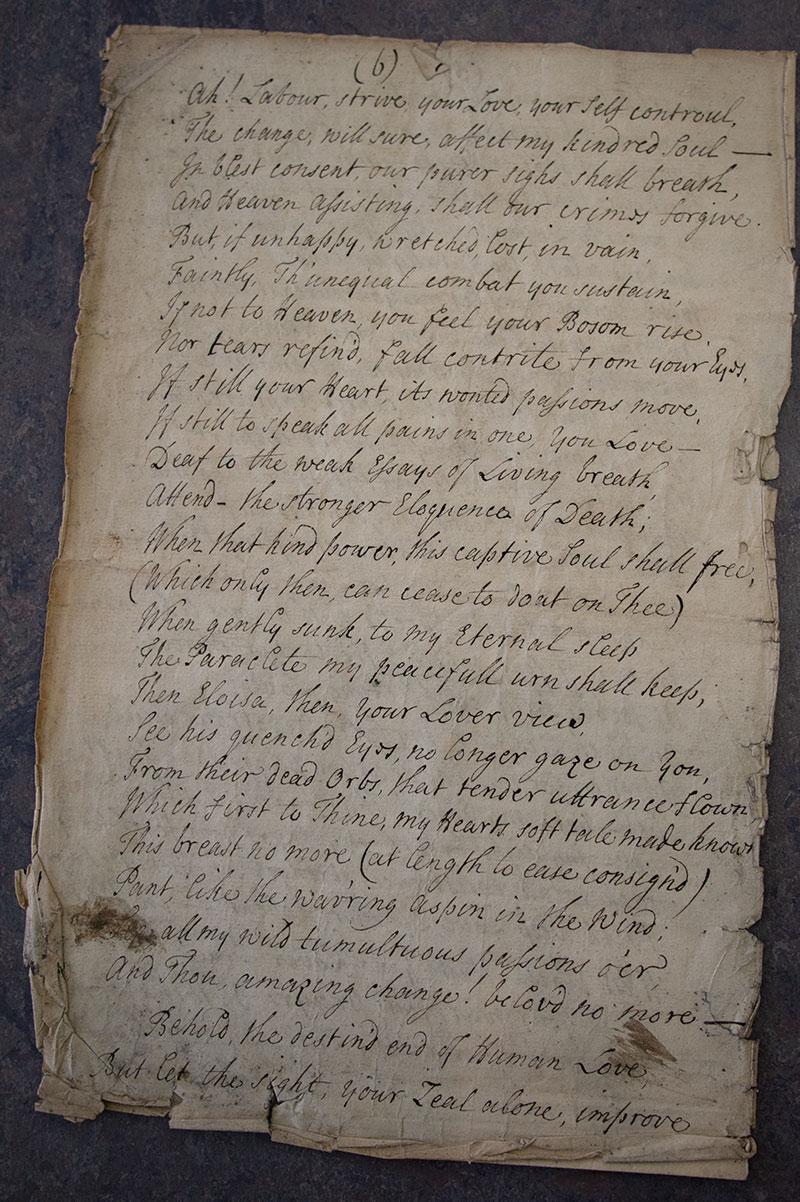 (6)
Ah! Labour, strive your Love, your Self controul,
The change, will sure, affect my kindred Soul —
In blest consent, our purer sighs shall breath,
And Heaven assisting, shall our crimes forgive.
But, if unhappy, wretched, lost, in vain,
Faintly, Th'unequal combat you sustain,
If not to Heaven, you feel your Bosom rise,
Nor tears refin'd, fall contrite from your Eyes,
If still your Heart, its wonted passions move,
If still to speak all pains in one, You Love —
Deaf to the weak Essays of Living breath,
Attend - the stronger Eloquence of Death;
When that kind power, this captive Soul shall free,
(Which only then, can cease to doat on Thee)
When gently sunk, to my Eternal sleep
The Paraclete my peacefull urn shall keep,
Then Eloisa, then, your Lover view,
See his quench'd Eyes, no longer gaze on You,
From their dead Orbs, that tender uttrance flown
Which first to Thine, my Hearts soft tale made known
This breast no more (at length to ease consign'd)
Pant, like the wav'ring aspin in the Wind;
all my wild tumultuous passions o'er,
And Thou, amazing change! belov'd no more —
Behold, the destin'd end of Human Love,
But let the sight, your Zeal alone, improve